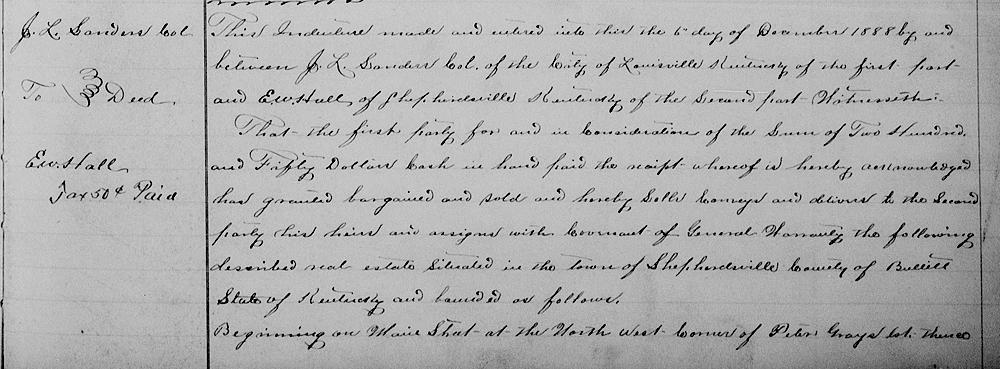 J. L. Sanders Col
To Deed
E.W. Hall
Tax 50¢ Paid
This Indenture made and entered into this the 6th day of December 1888 by and
between J. L. Sanders Col. of the City of Louisville Kentucky of the first part
and E.W. Hall of Shepherdsville Kentucky of the Second part Witnesseth:
That the first party for and in Consideration of the Sum of Two Hundred
and Fifty Dollars Cash in hand paid the receipt whereof is hereby acknowledged
has granted bargained and sold and hereby Sells Conveys and delivers to the Second
party his heirs and assigns with Covenant of General Warranty the following
described real estate Situated in the town of Shepherdsville County of Bullitt
State of Kentucky and bounded as follows.
Beginning on Main Street at the North West Corner of Peter Grays lot thence